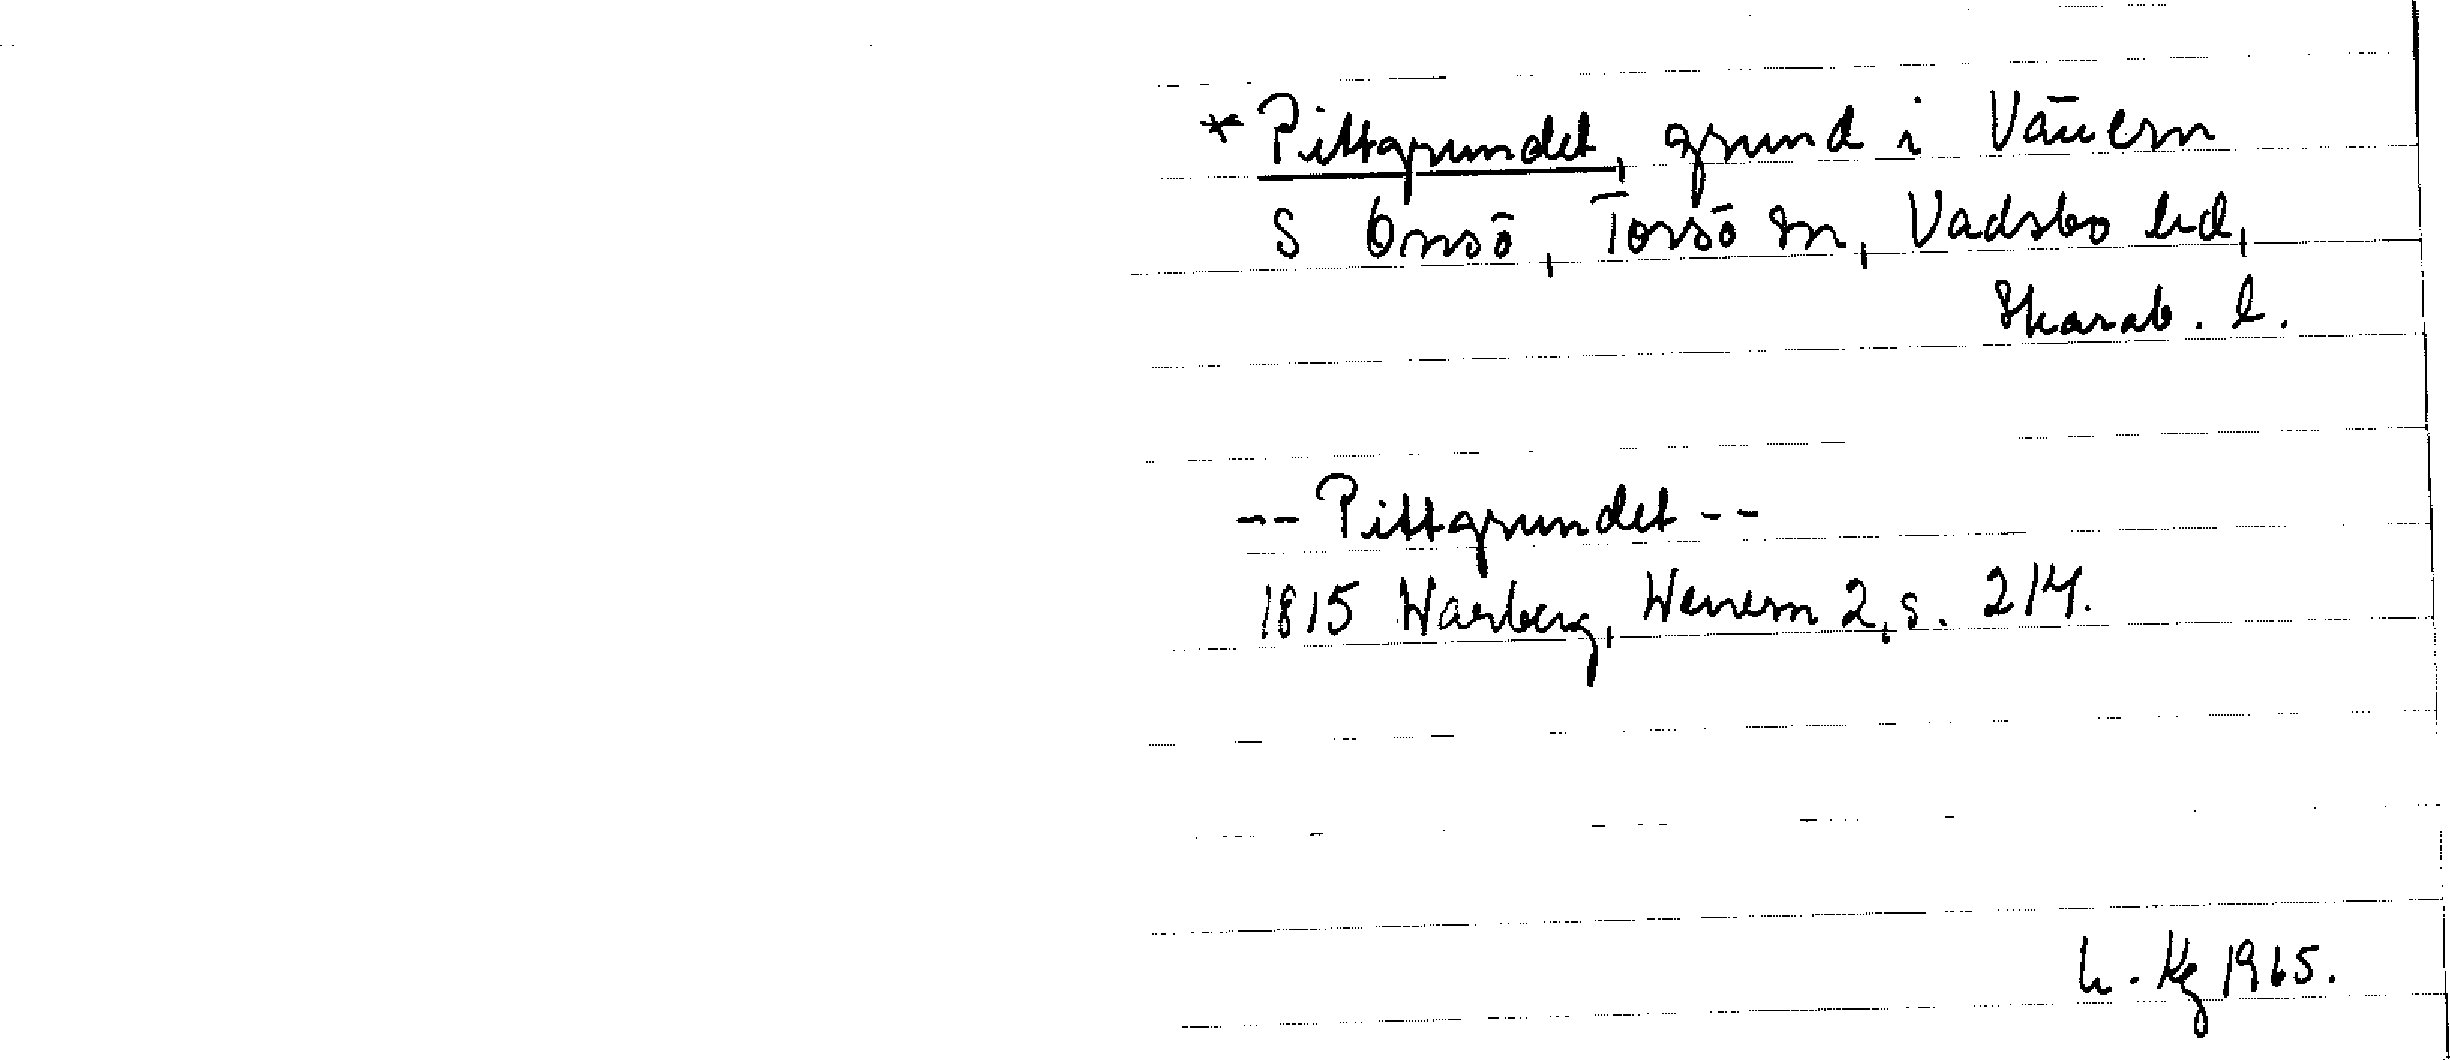 * Pittgrundet, grund i Vänern
S Onsö, Torsö sn, Vadsbo hd,
Skarab. l.
-- Pittgrundet --
1815 Warberg, Wenern 2, s. 214.
h. Kg 1965.